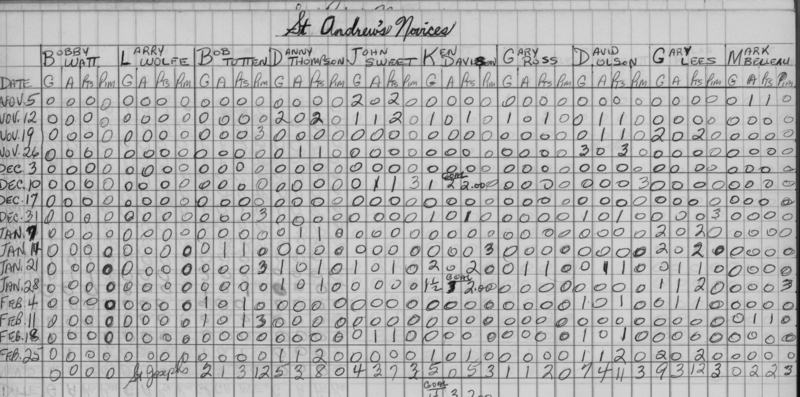 St Andrew's Novices
BOBBY WATT LARRY WOLFE BOB TOTTEN DANNY THOMPSON JOHN SWEET KEN DAVISON GARY ROSS DAVID OLSON GARY LEES MARK BELLEAU
DATE G A Pts Pim G A Pts Pim G A Pts Pim G A Pts Pim G A Pts Pim G A Pts Pim G A Pts Pim G A Pts Pim G A Pts Pim G A Pts Pim
NOV. 5 0 0 0 0 0 0 0 0 0 0 0 0 0 0 0 0 2 0 2 0 0 0 0 0 0 0 0 0 0 0 0 0 0 0 0 0 0 1 1 0
NOV. 12 0 0 0 0 0 0 0 0 0 0 0 0 2 0 2 0 1 1 2 0 1 0 1 0 1 0 1 0 0 1 1 0 0 0 0 0 0 0 0 0
NOV. 19 0 0 0 0 0 0 0 0 0 0 0 3 0 0 0 0 0 0 0 0 0 0 0 0 0 0 0 0 0 1 1 0 2 0 2 0 0 0 0 0
NOV. 26 0 0 0 0 0 0 0 0 0 0 0 0 0 1 1 0 0 0 0 0 0 0 0 0 0 0 0 0 3 0 3 0 0 0 0 0 0 0 0 0
DEC. 3 0 0 0 0 0 0 0 0 0 0 0 0 0 0 0 0 0 0 0 0 0 0 0 0 0 0 0 0 0 0 0 0 0 0 0 0 0 0 0 0
DEC. 10 0 0 0 0 0 0 0 0 0 0 0 0 0 0 0 0 0 1 1 3 1 GOAL 2 2.00 0 0 0 0 0 0 0 3 0 0 0 0 0 0 0 0
DEC. 17 0 0 0 0 0 0 0 0 0 0 0 0 0 0 0 0 0 0 0 0 0 0 0 0 0 0 0 0 0 0 0 0 0 0 0 0 0 0 0 0
DEC. 31 0 0 0 0 0 0 0 0 0 0 0 3 0 0 0 0 0 0 0 0 1 0 1 0 0 0 0 0 1 0 1 0 0 0 0 3 0 0 0 0
JAN. 7 0 0 0 0 0 0 0 0 0 0 0 0 0 1 1 0 0 0 0 0 0 0 0 0 0 0 0 0 0 0 0 0 2 0 2 0 0 0 0 0
JAN 14 0 0 0 0 0 0 0 0 0 1 1 0 0 0 0 0 0 0 0 0 0 0 0 3 0 0 0 0 0 0 0 0 2 0 2 0 0 0 0 0
JAN. 21 0 0 0 0 0 0 0 0 0 0 0 3 1 0 1 0 1 0 1 0 2 0 2 0 0 1 1 0 0 1 1 0 0 1 1 0 0 0 0 0
JAN. 28 0 0 0 0 0 0 0 0 0 0 0 0 1 0 1 0 0 0 0 0 1½ GOAL 3 2.00 0 0 0 0 0 0 0 0 1 1 2 0 0 0 0 3
FEB. 4 0 0 0 0 0 0 0 0 1 0 1 0 0 0 0 0 0 0 0 0 0 0 0 0 0 0 0 0 1 0 1 0 0 1 1 0 0 0 0 0
FEB. 11 0 0 0 0 0 0 0 0 1 0 1 3 0 0 0 0 0 0 0 0 0 0 0 0 0 0 0 0 0 0 0 0 0 0 0 0 0 1 1 0
FEB. 18 0 0 0 0 0 0 0 0 0 0 0 0 0 0 0 0 0 1 1 0 0 0 0 0 0 0 0 0 1 0 1 0 0 0 0 0 0 0 0 0
FEB. 25 0 0 0 0 0 0 0 0 0 0 0 0 1 1 2 0 0 0 0 0 1 0 1 0 0 0 0 0 1 1 2 0 2 0 2 0 0 0 0 0
0 0 0 0 St Josephs 2 1 3 12 5 3 8 0 4 3 7 3 5 0 5 3 1 1 2 0 7 4 11 3 9 3 12 3 0 2 2 3
GOAL